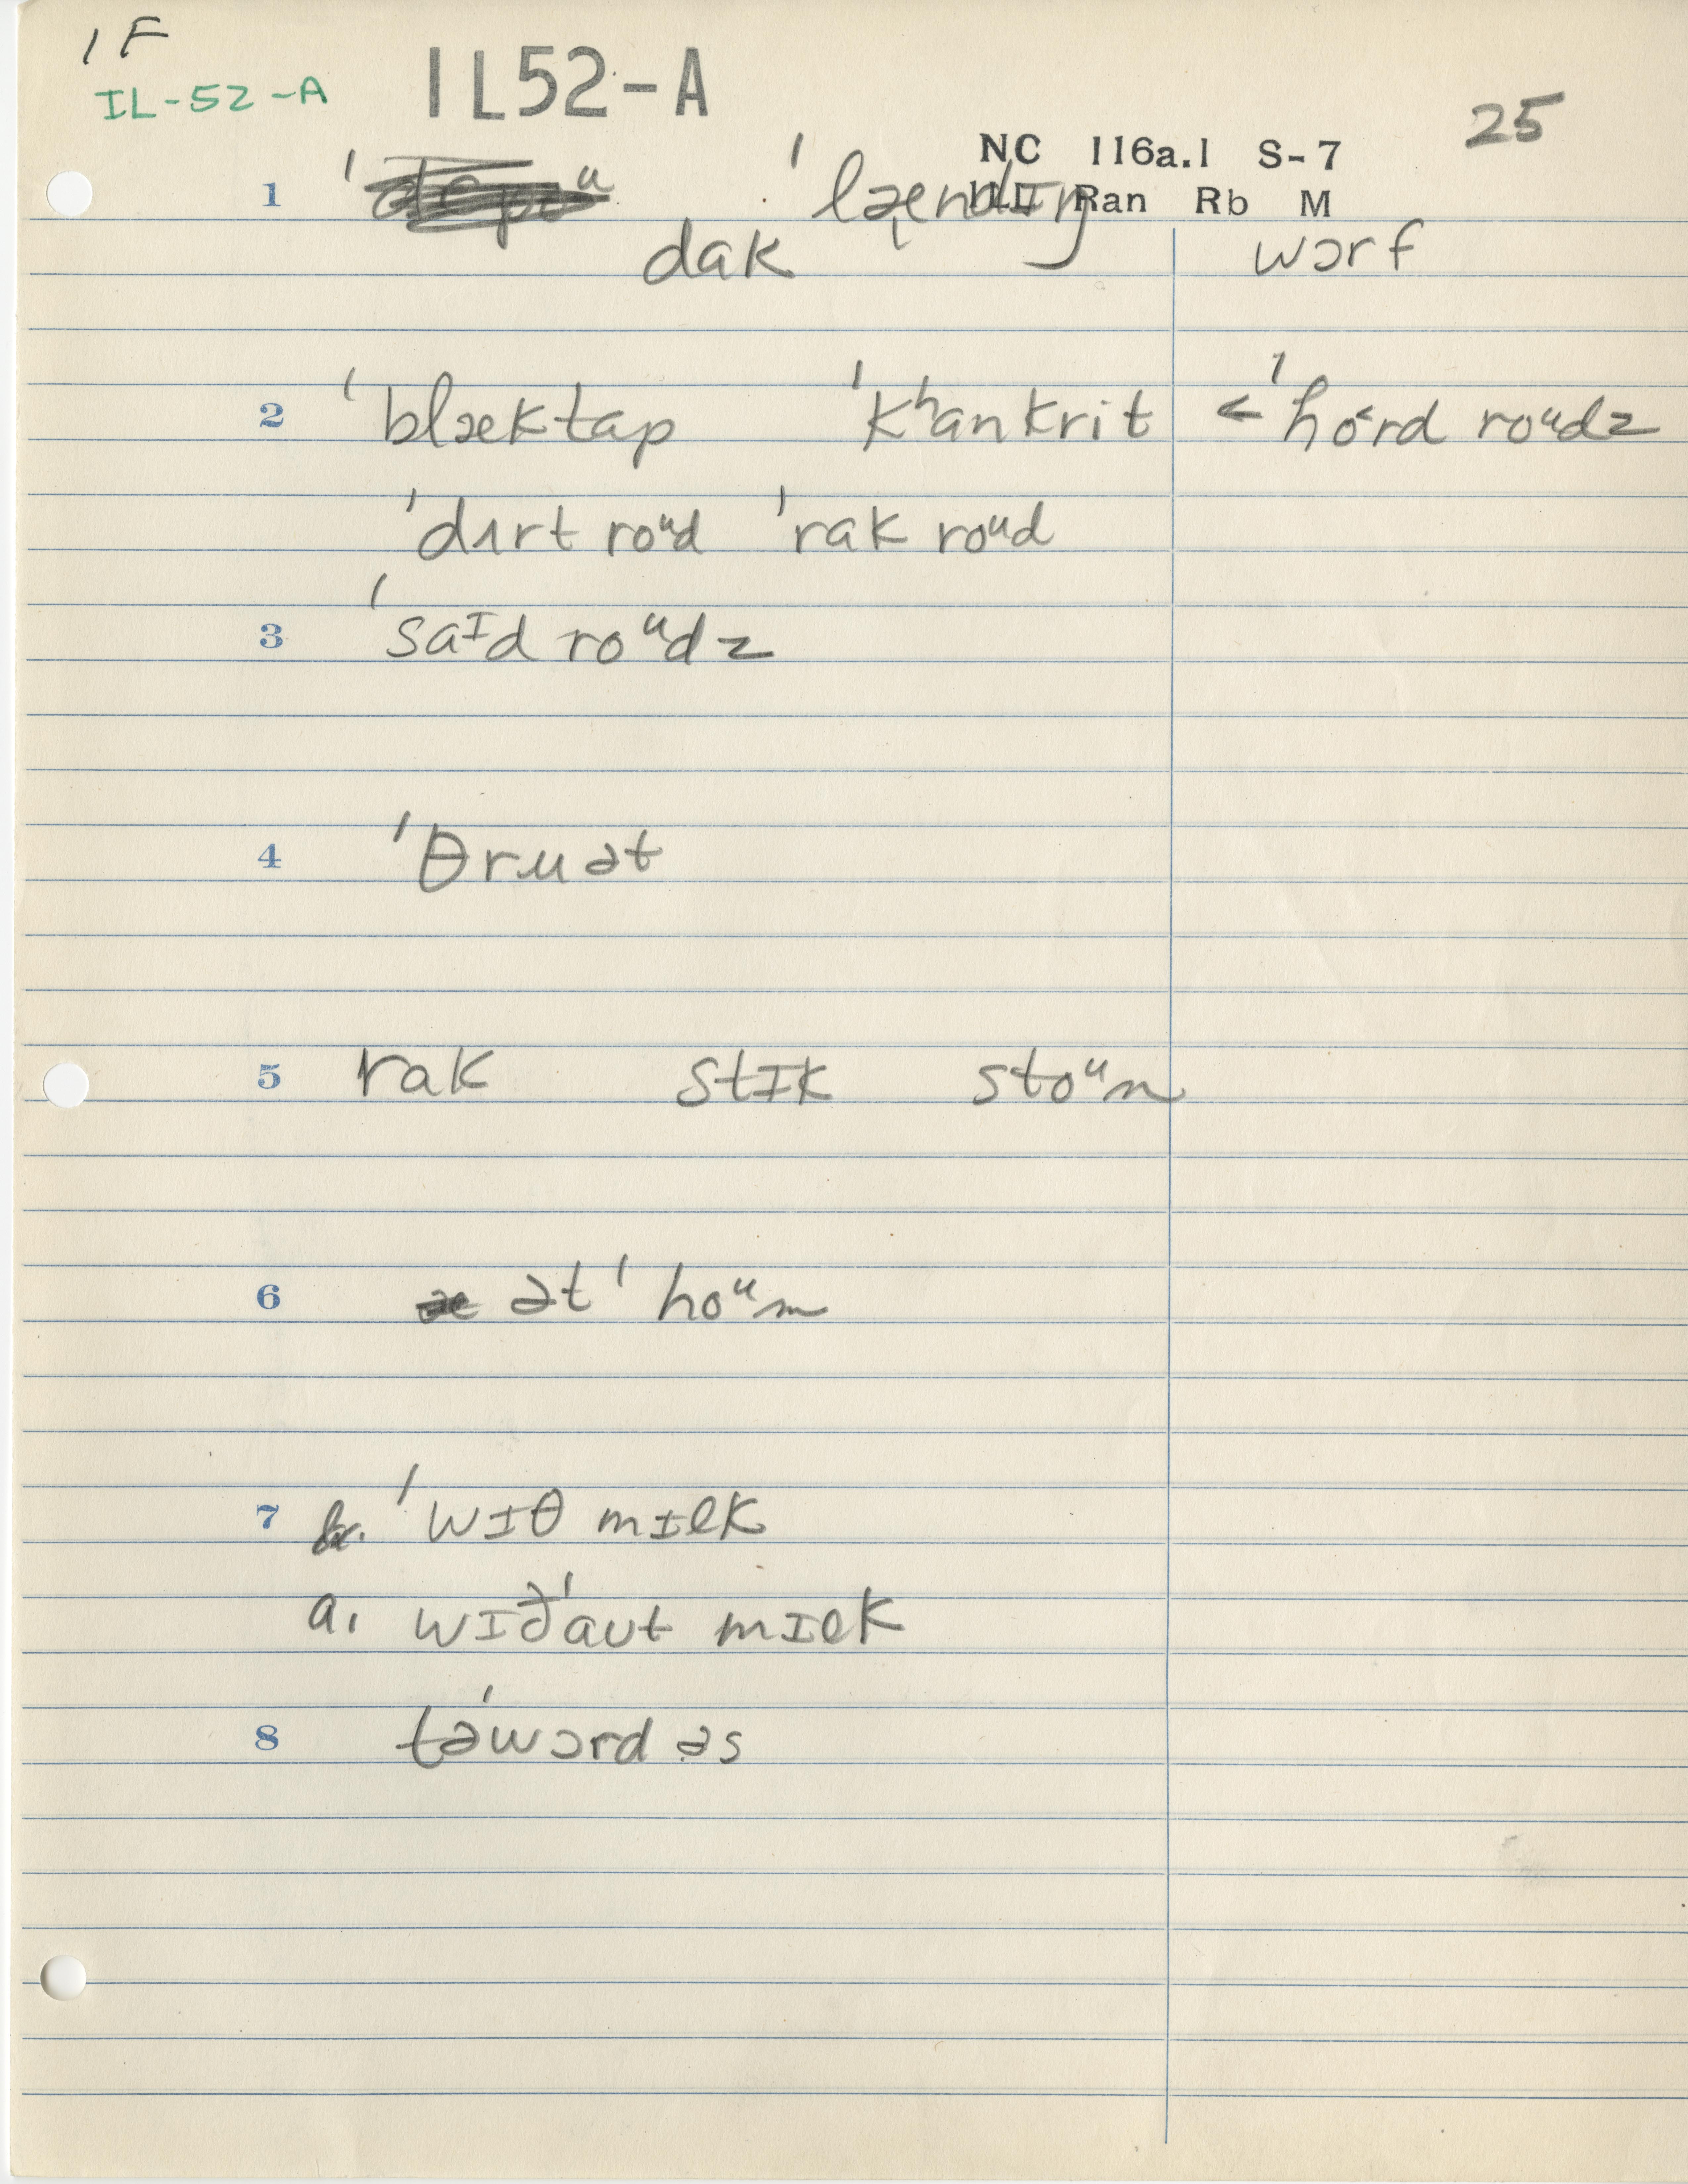 1 F
IL-52-A IL52-A 25
NC 116a.1 S-7
Ran Rb M
1 ˈlændɪŋ
dak wɔrf
2 ˈblæktap ˈkʰankrit < ˈhɑrd roᵘdz
ˈdɪrt roᵘd ˈrak roᵘd
3 ˈsaᴵd roᵘdz
4 ˈθruət
5 rak stɪk stoᵘn
6 ət ˈhoᵘm
7 b. ˈwɪθ mɪlk
a. wɪðˈaut mɪlk
8 təˈwɔrd əs